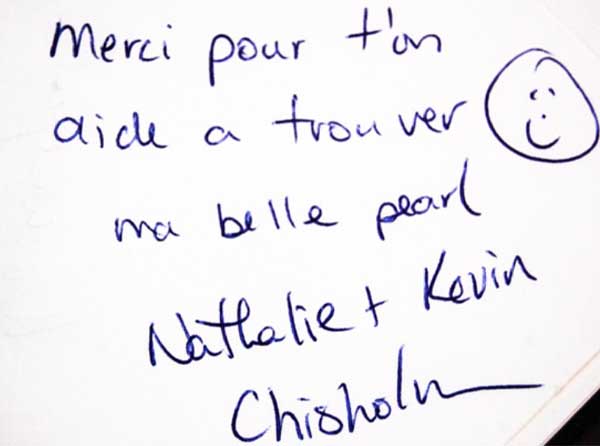 Merci pour t'on
aide a trouver
ma belle pearl
Nathalie + Kevin
Chisholm